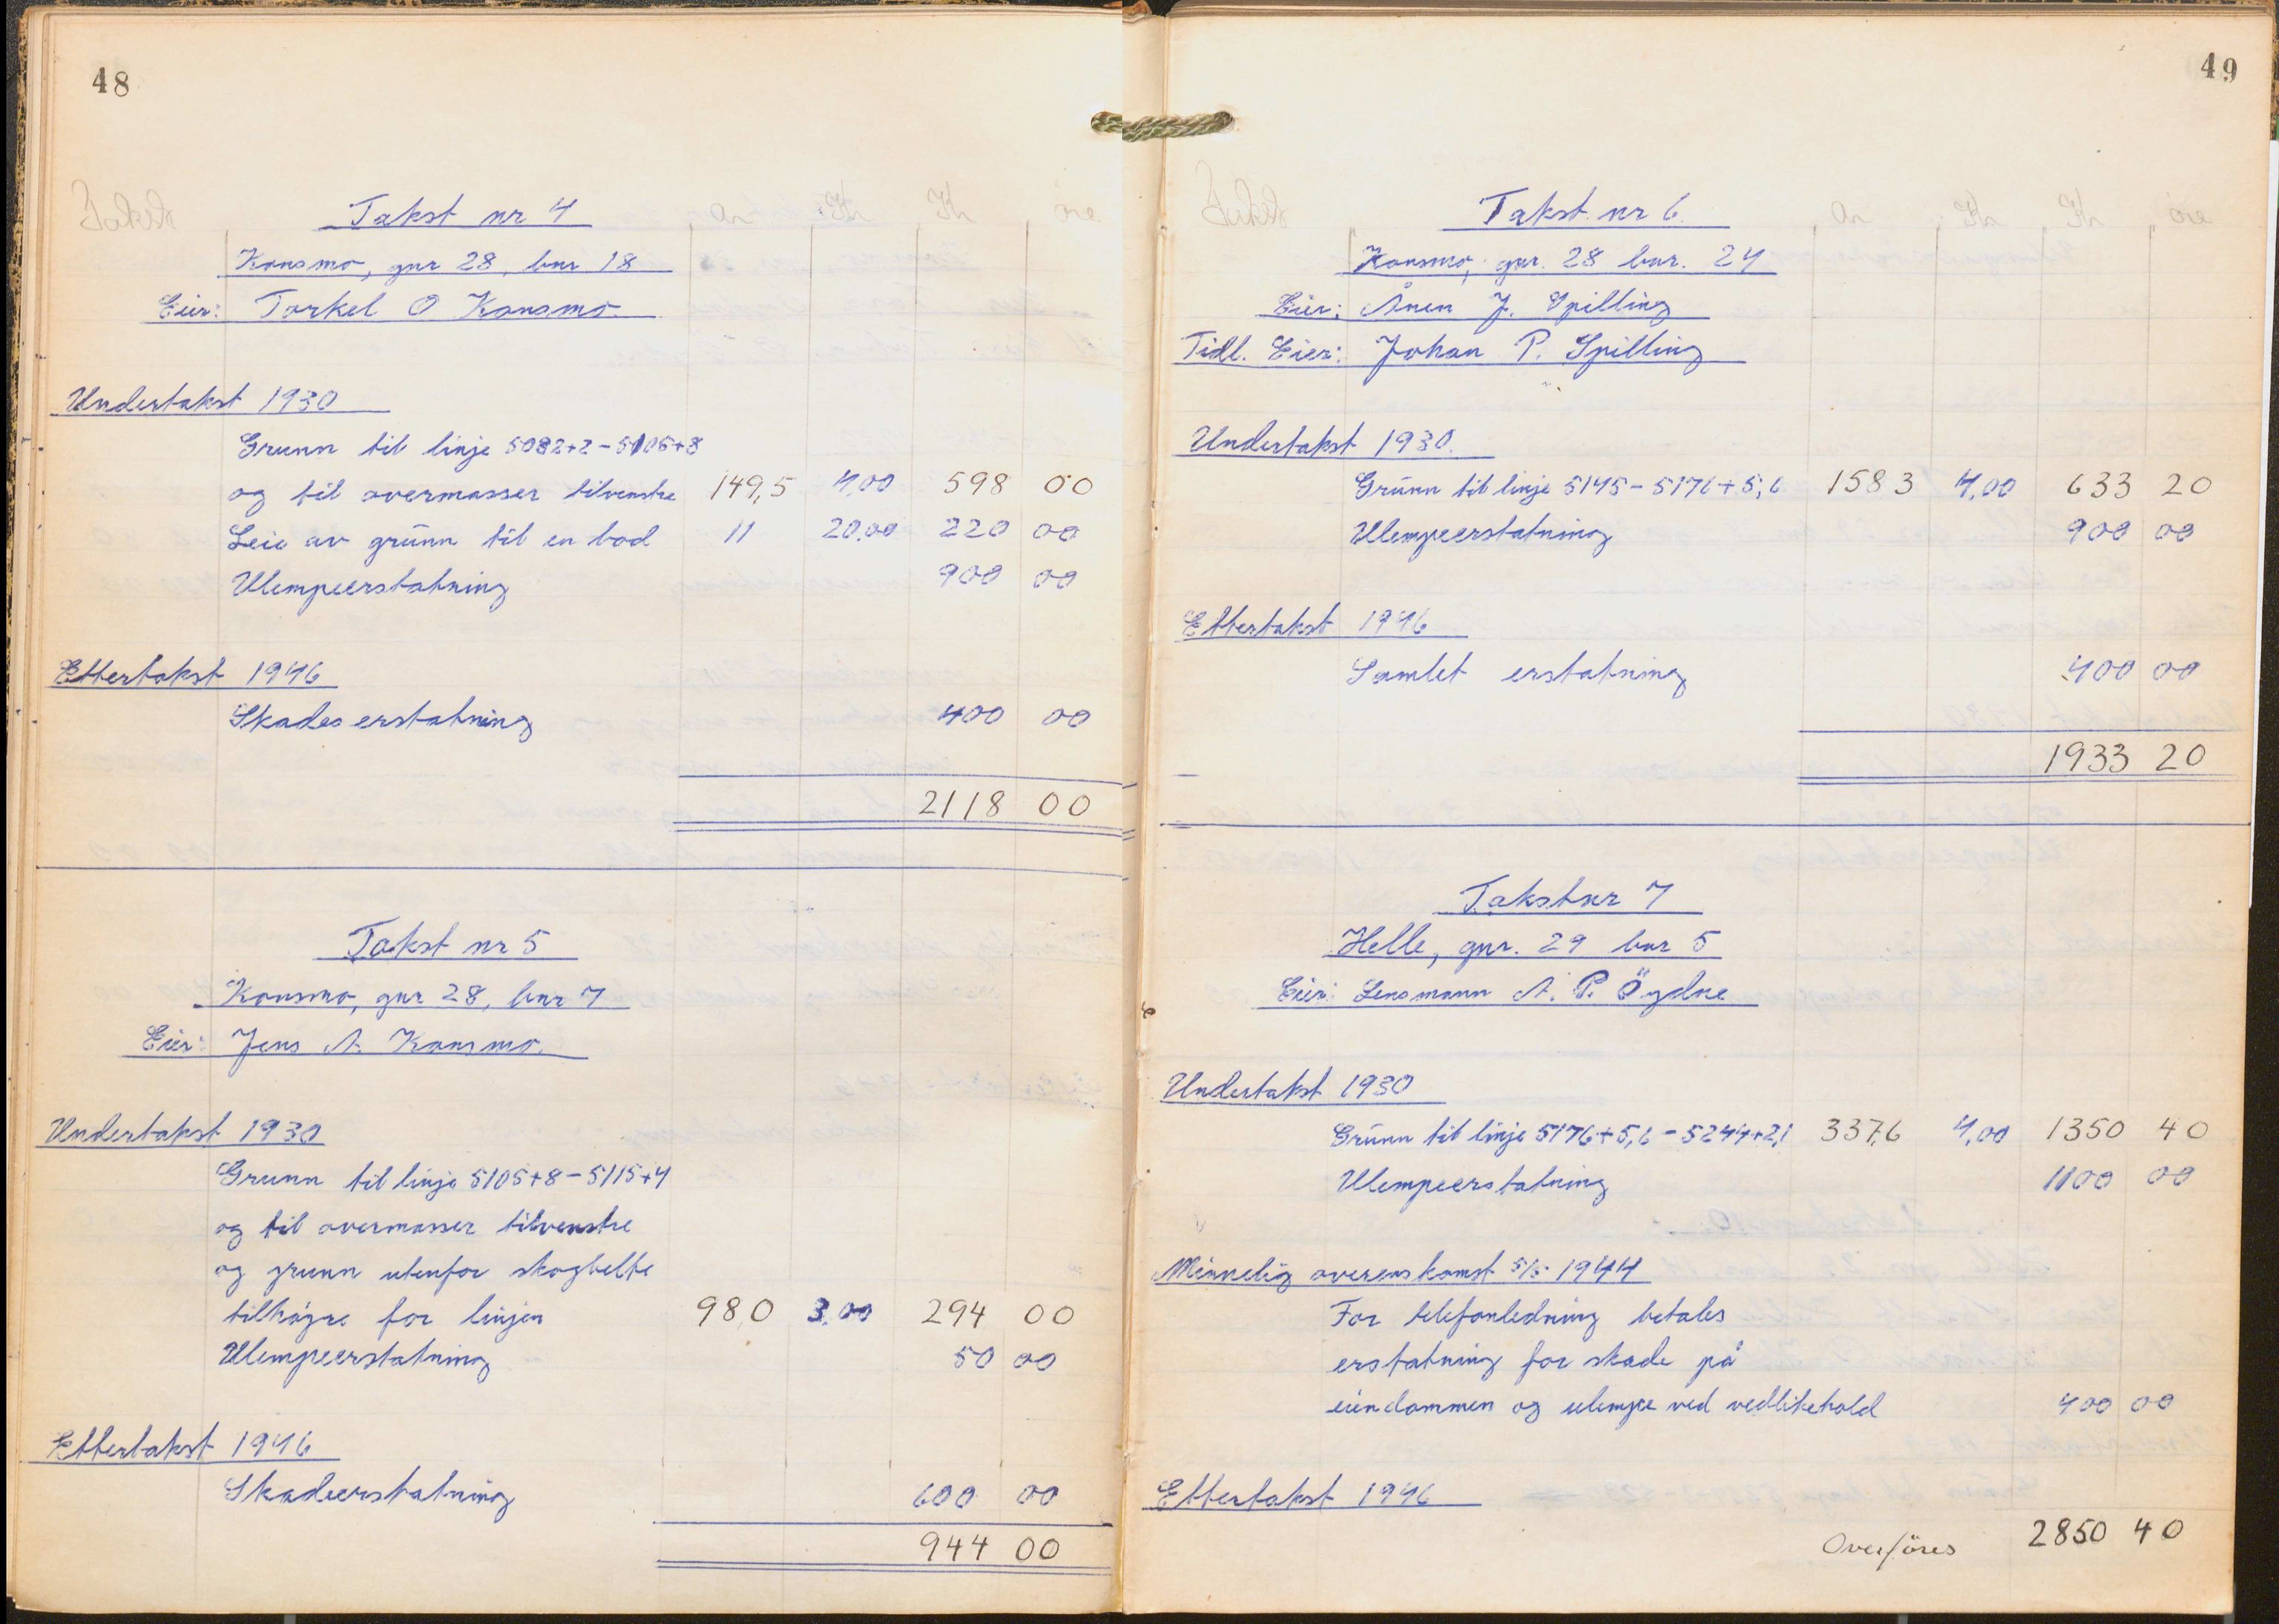 48
Takst ar Kr Kr øre
Takst nr 4
Konsmo, gnr 28, bnr 18
Eier: Torkel O Konsmo
Undertakst 1930
Grunn til linje 5082+2-5105+8
og til overmasser tilvenstre 149,5 4,00 598 00
Leie av grunn til en bod 11 20,00 220 00
Ulempeerstatning 900 00
Ettertakst 1946
Skadeserstatning 400 00
2118 00
Takst nr 5
Konsmo, gnr 28, bnr 7
Eier: Jens A. Konsmo.
Undertakst 1930
Grunn til linje 5105+8-5115+4
og til overmasser tilvenstre
og grunn utenfor skogbelte
tilhögre for linjen 98,0 3,00 294 00
Ulempeerstatning 50 00
Ettertakst 1946
Skadeerstatning 600 00
944 00
49
Takst ar Kr Kr øre
Takst nr 6
Konsmo, gnr. 28 bnr. 24
Eier: Ånen J. Spilling
Tidl. Eier: Johan P. Spilling
Undertakst 1930.
Grunn til linje 5145-5176+5,6 158 3 4,00 633 20
Ulempeerstatning 900 00
Ettertakst 1946
Samlet erstatning 400 00
1933 20
Takst nr 7
Helle, gnr. 29 bnr 5
Eier: Lensmann A. P. Öydne
Undertakst 1930
Grunn til linje 5176+5,6-5244+2,1 337,6 4,00 1350 40
Ulempeerstatning 1100 00
Minnelig overenskomst 5/5 1944
For telefonledning betales
erstatning for skade på
eiendommen og ulempe ved vedlikehold 400 00
Ettertakst 1946
Overföres 2850 40